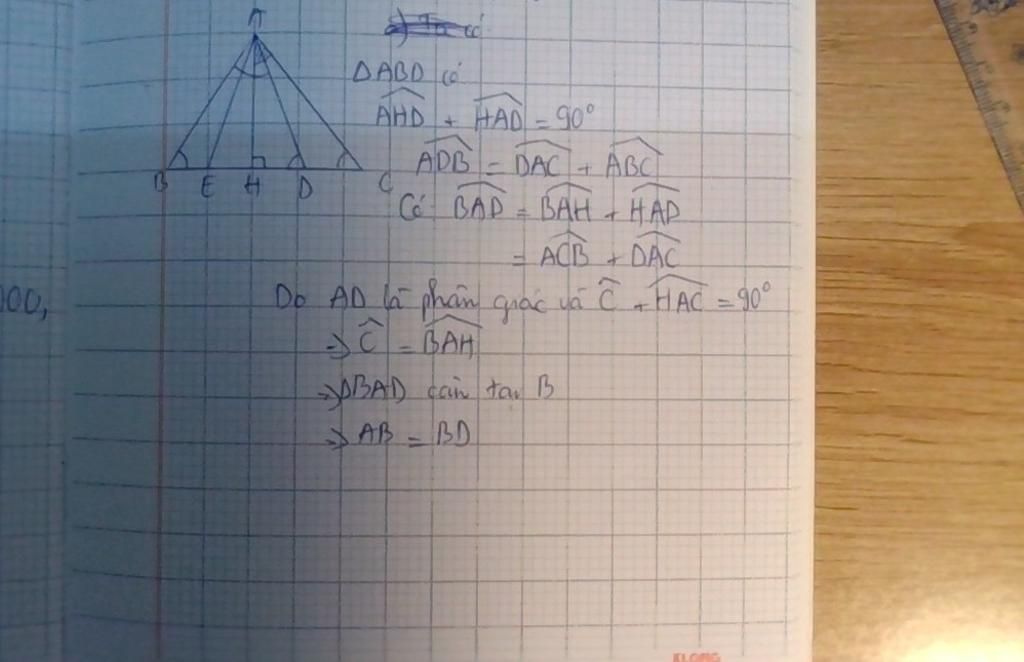 A
B E H D C
ΔABD có
AHD + HAD = 90°
ADB = DAC + ABC
Có BAD = BAH + HAD
= ACB + DAC
Do AD là phân giác và C + HAC = 90°
=> C = BAH
=> ΔBAD cân tại B
=> AB = BD
00,
KLONG